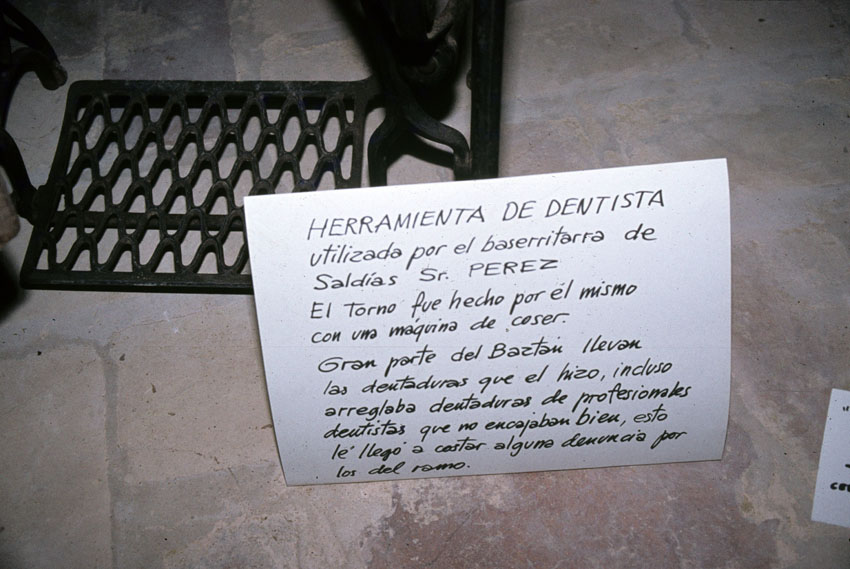 HERRAMIENTA DE DENTISTA
utilizada por el baserritarra de
Saldías Sr. PEREZ
El Torno fue hecho por él mismo
con una máquina de coser.
Gran parte del Baztán llevan
las dentaduras que el hizo, incluso
arreglaba dentaduras de profesionales
dentistas que no encajaban bien, esto
le llegó a costar alguna denuncia por
los del ramo.